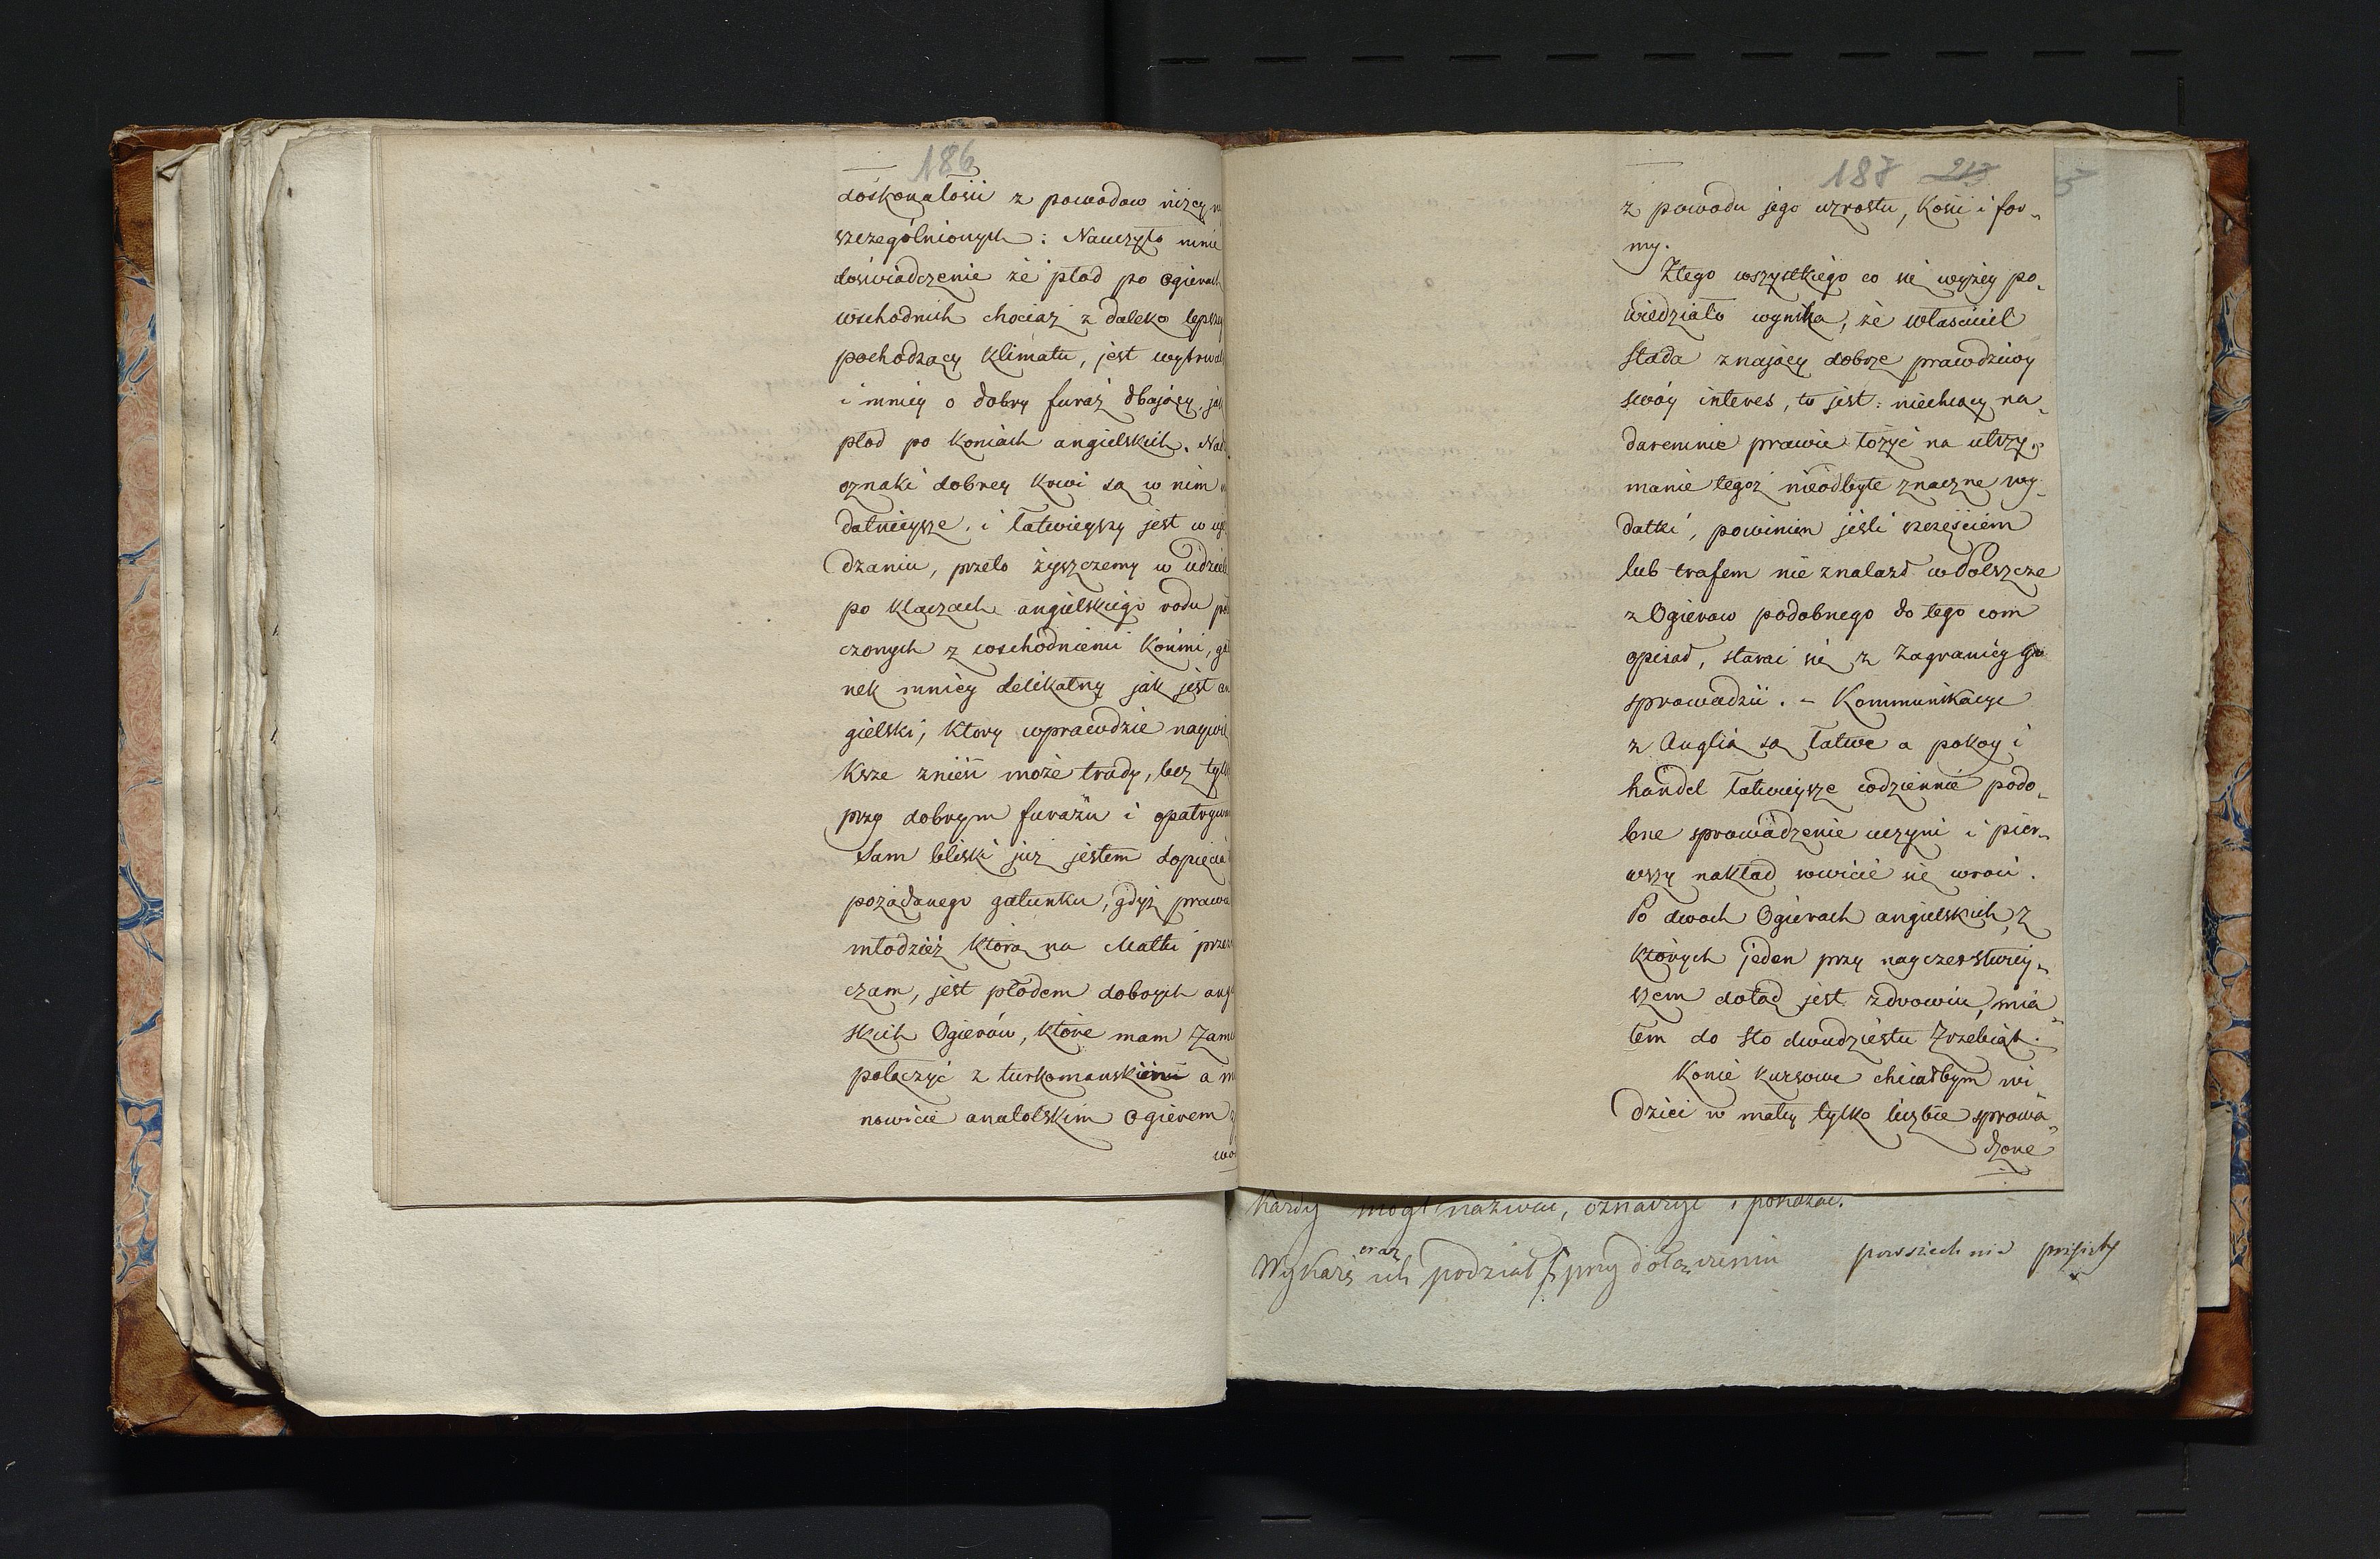 186
doskonałości z powodow niżey w
szczególnionych: Nauczyło mnie
doświadczenie że płod po Ogierach
wschodnich chociaż z daleko lepszy
pochodzący klimatu, jest wytrwal
i mniey o dobry furaż dbaiący, jak
płod po koniach angielskich. Nad
oznaki dobrey krwi są w nim
datnieysze, i łatwieyszy jest w
dzaniu, przeto życzemy w udziele
po klaczach angielskiego rodu
czonych z wschodniemi końmi, ga
nek mniey delikatny jak jest an
gielski, ktory wprawdzie naywię
ksze znieść może trudy, lecz tylk
przy dobrym furażu i opatrywan
Sam bliski już jestem dopięcia
pożądanego gatunku, gdyż prawie
młodzież którą na Matki przezn
czam, jest płodem dobrych angi
skich Ogierów, które mam zami
połączyć z turkomanskiemi a m
nowicie anatolskim Ogierem
wo
187 213
z powodu jego wzrostu, kości i for-
my.
Z tego wszystkiego co się wyżey po-
wiedziało wynika, że właściciel
stada znający dobrze prawdziwy
swóy interes, to jest: niechcący na-
daremnie prawie łożyć na utrzy-
manie tegoż nieodbyte znaczne wy-
datki, powinien jeśli szczęściem
lub trafem nie znalazł w Polszcze
z Ogierow podobnego do tego com
opisał, starać się z zagranicy go
sprowadzić. - Kommunikacye
z Anglią są łatwe a pokoy i
handel łatwieysze codziennie podo-
bne sprowadzenie uczyni i pier-
wszy nakład sowicie się wroci.
Po dwoch Ogierach angielskich, z
których jeden przy nayczerstwiey-
szem dotąd jest zdrowiu, mia-
łem do sto dwudziestu zrzebiąt.
Konie kursowe chciałbym wi
dzieć w małey tylko liczbie sprowa-
dzone
Każdy mógł nazwać, oznaczyć i pokazać.
oraz
Wykaże ich podział przy dołączeniu powszechnie przyięty